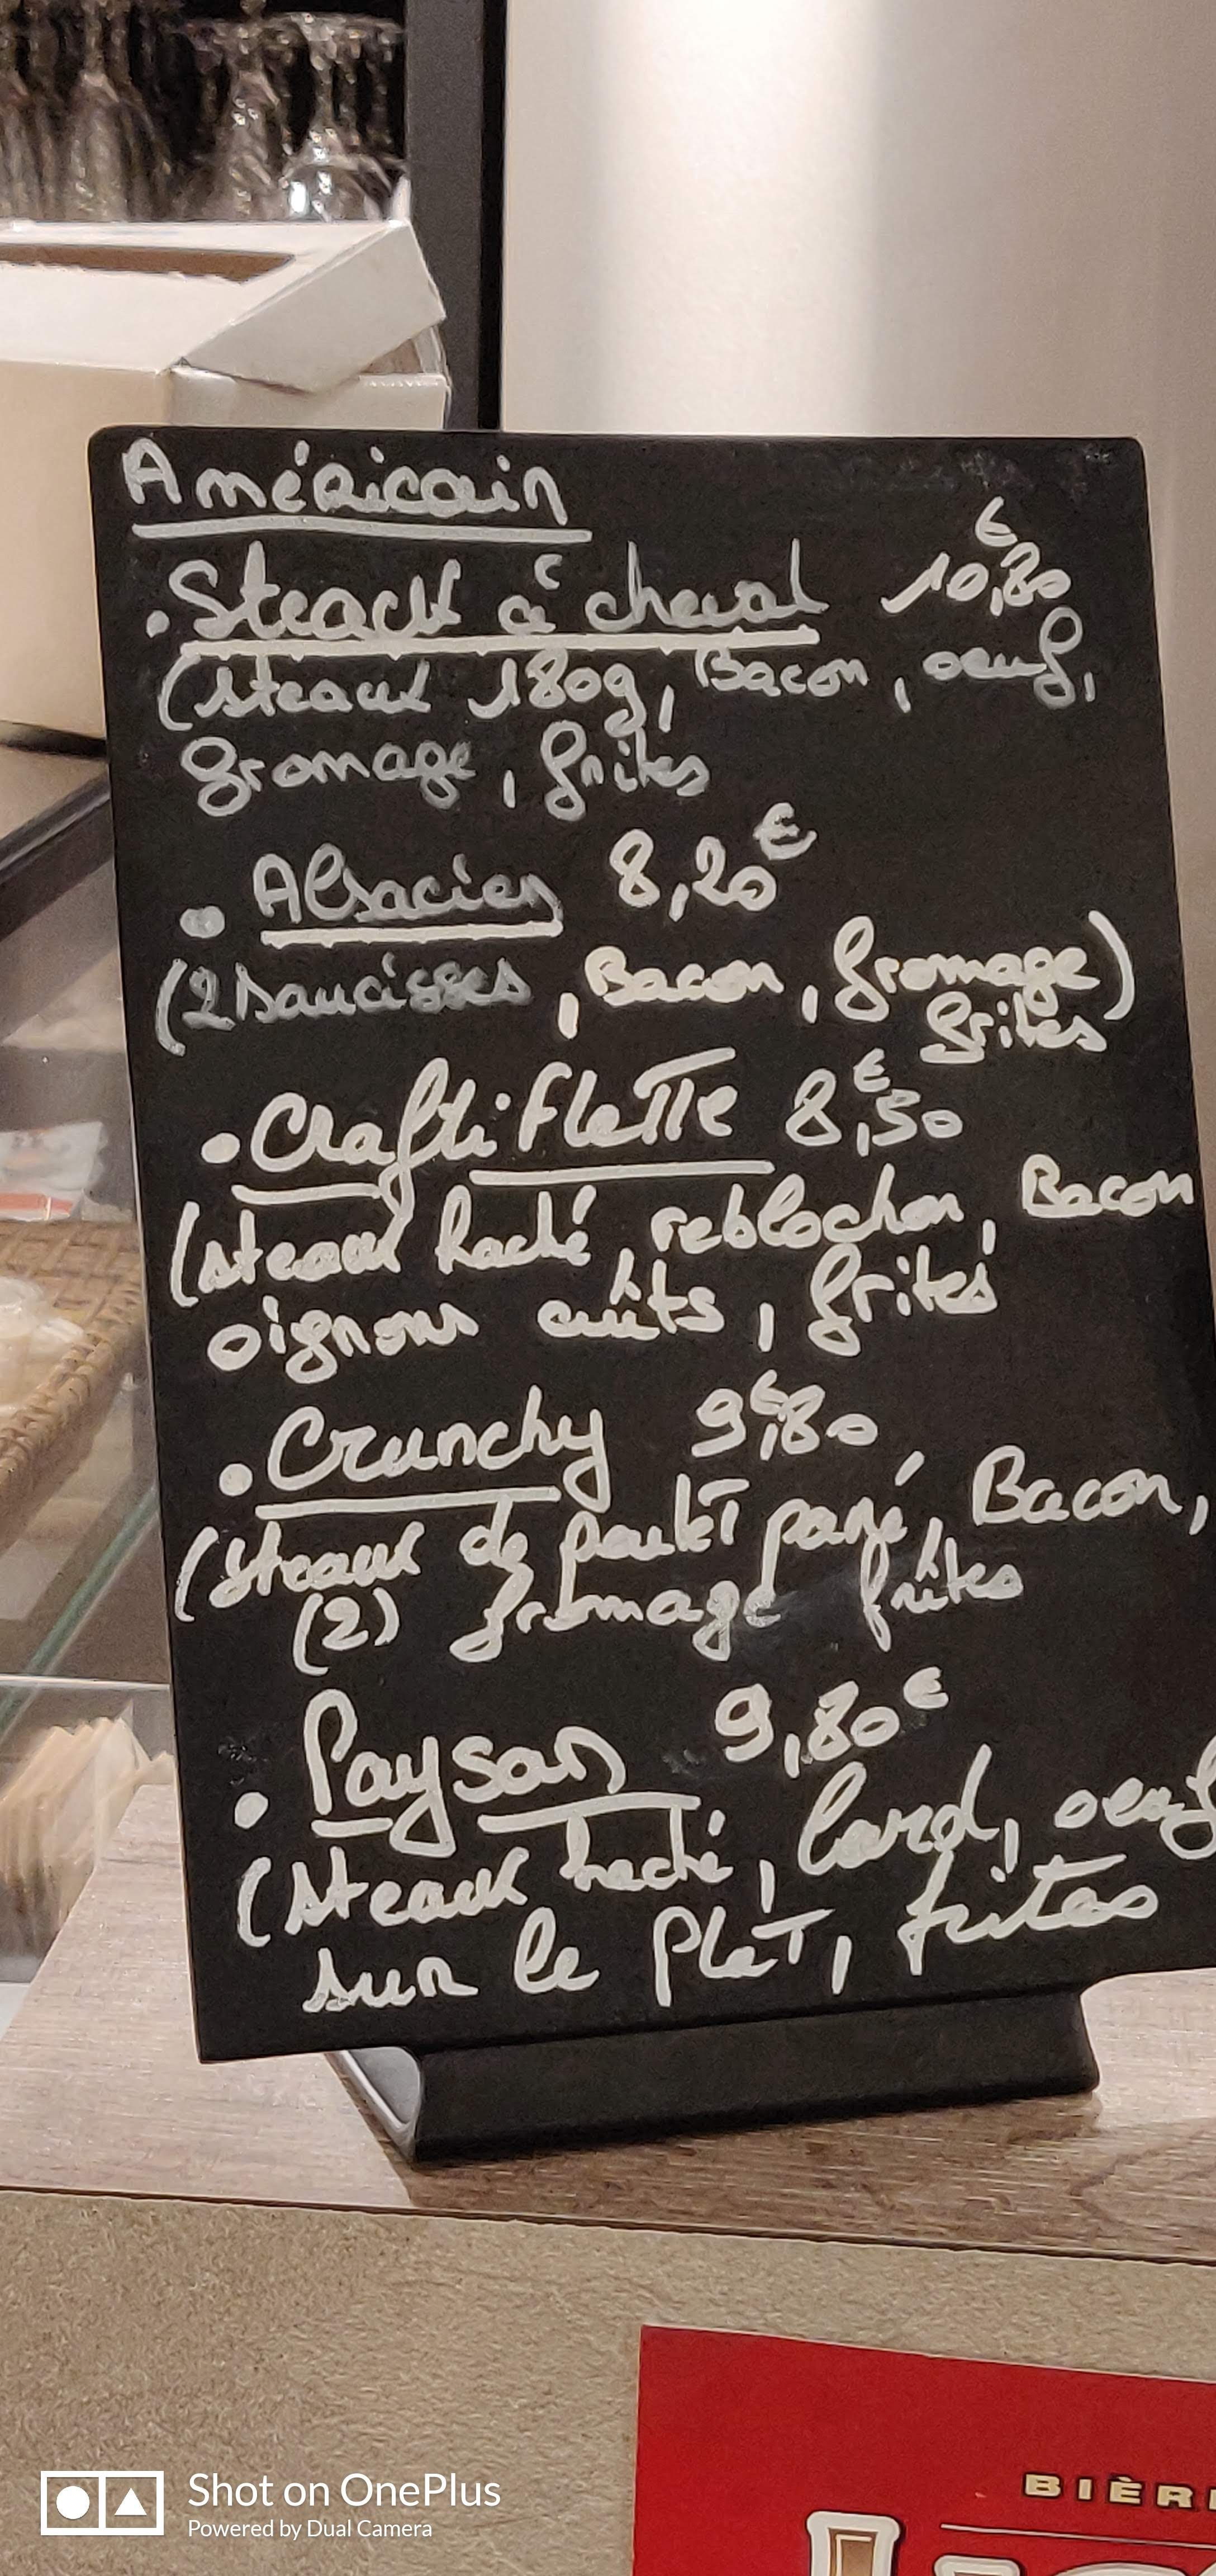 Américain
• Steack à cheval 10,80€
(steack 180g, Bacon, oeuf,
fromage, frites
• Alsacien 8,20€
(2 saucisses, Bacon, fromage)
frites
• Craftiflette 8,50€
(steack haché, reblochon, Bacon
oignons cuits, frites
• Crunchy 9,80€
(steack de poulet pané, Bacon,
(2) fromage frites
• Paysan 9,80€
(steack haché, lard, oeuf
sur le plat, frites
BIÈR
Shot on OnePlus
Powered by Dual Camera